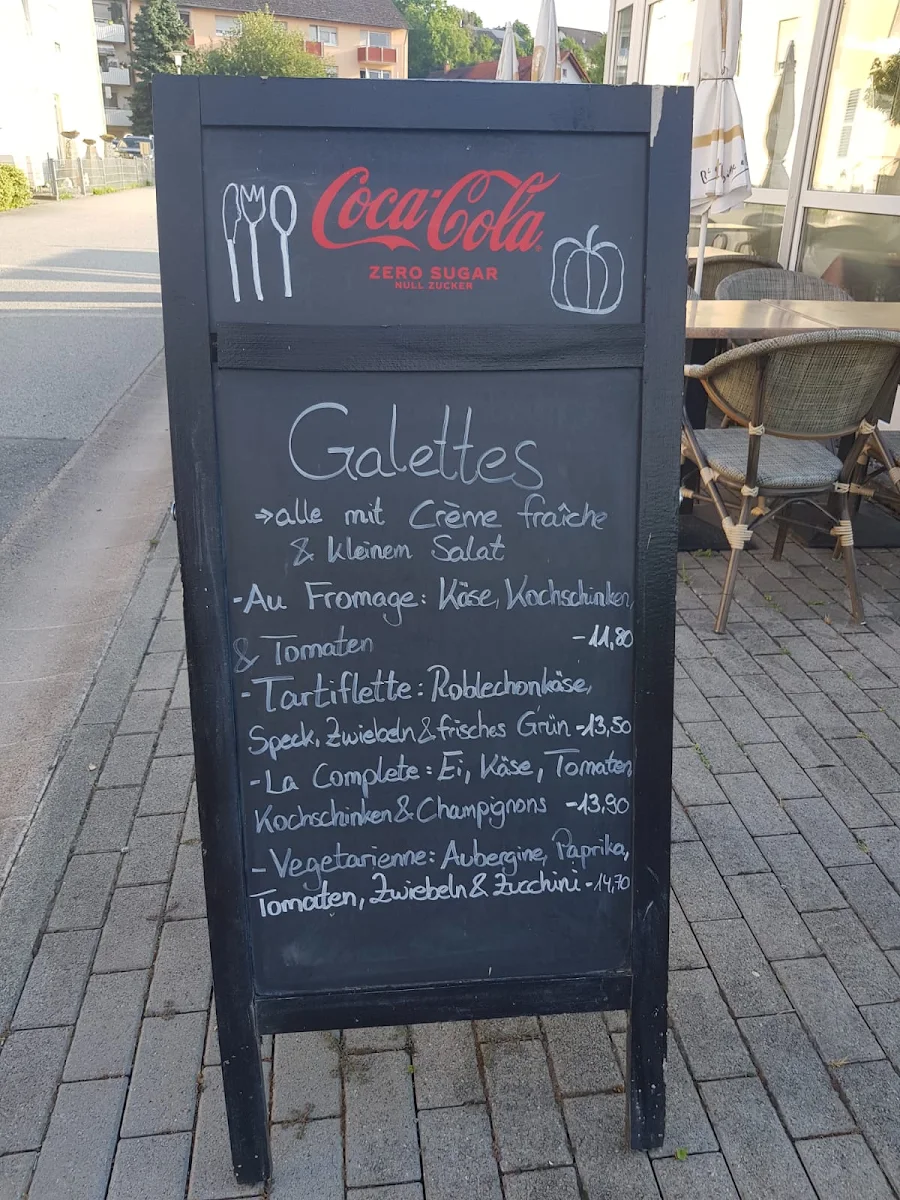 Coca-Cola
ZERO SUGAR
NULL ZUCKER
Galettes
→alle mit Crème fraîche
& kleinem Salat
-Au Fromage: Käse, Kochschinken,
& Tomaten -11,80
-Tartiflette: Roblechonkäse,
Speck, Zwiebeln & frisches Grün -13,50
-La Complete: Ei, Käse, Tomaten,
Kochschinken & Champignons -13,90
- Vegetarienne: Aubergine, Paprika,
Tomaten, Zwiebeln & Zucchini -14,70